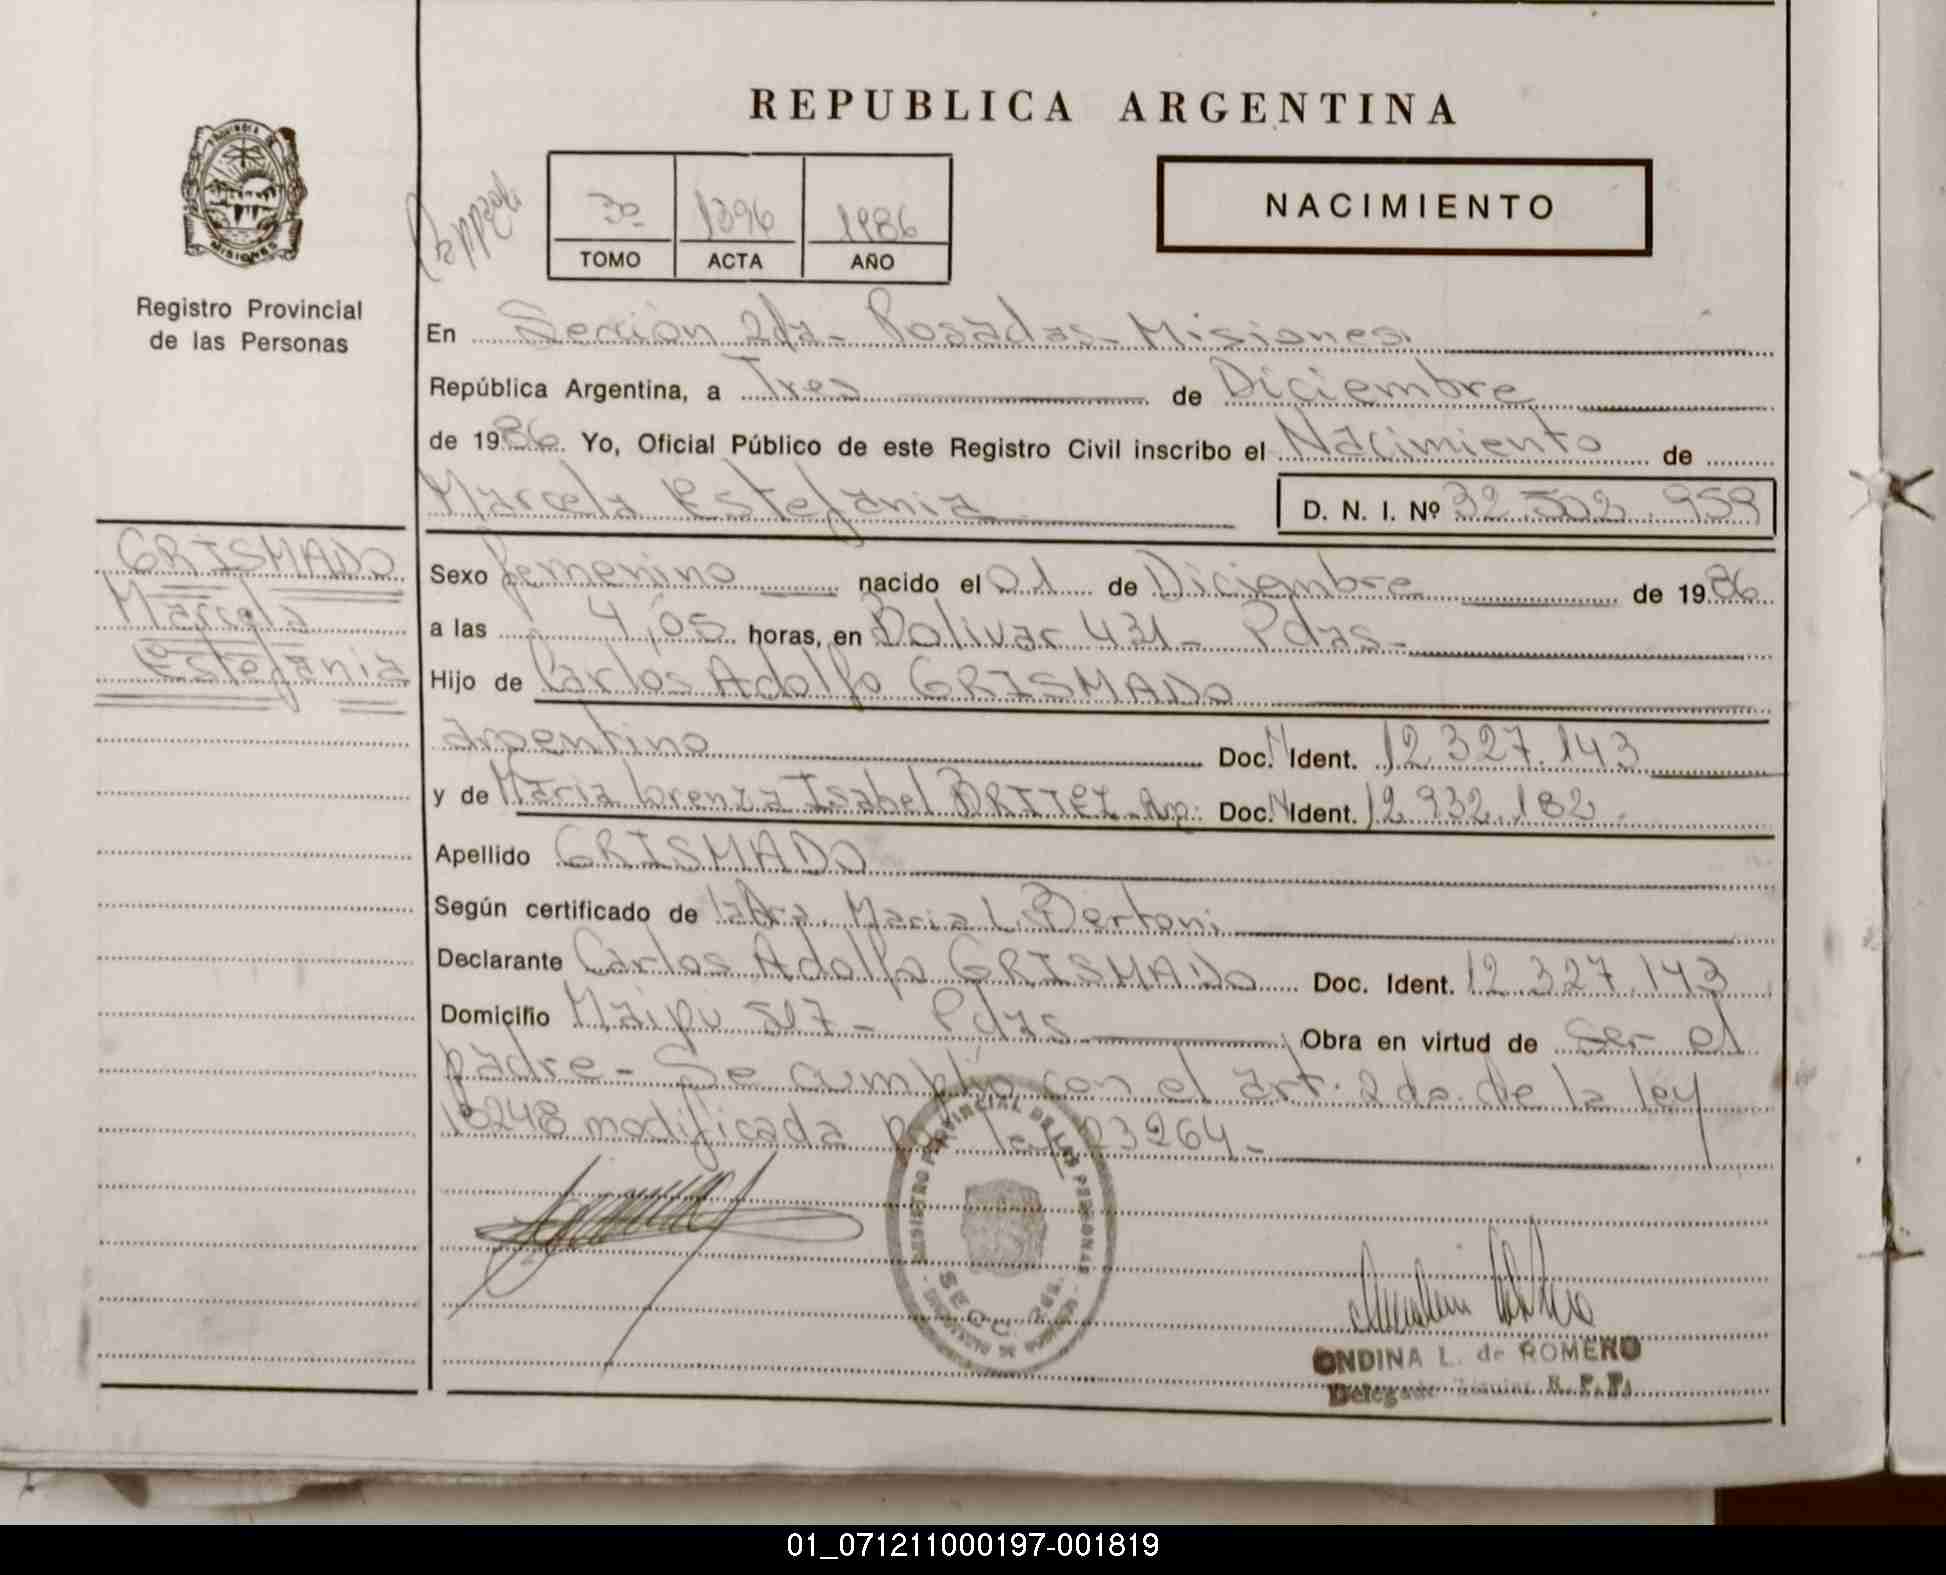 REPUBLICA ARGENTINA
PROVINCIA DE
MISIONES
Registro Provincial
de las Personas
3º 1396 1986
TOMO ACTA AÑO
NACIMIENTO
En Sección 2da - Posadas - Misiones.
República Argentina, a Tres de Diciembre
de 1986. Yo, Oficial Público de este Registro Civil inscribo el Nacimiento de
Marcela Estefania D. N. I. Nº 32 502 959
GRISMADO
Marcela
Estefania
Sexo femenino nacido el 01 de Diciembre de 1986
a las 4,05 horas, en Bolivar 431 - Pdas -
Hijo de Carlos Adolfo GRISMADO
argentino Doc. N Ident. 12.327.143
y de Maria Lorenza Isabel BRITEZ - Arg. Doc. N Ident. 12.932.182
Apellido GRISMADO
Según certificado de la Dra. Maria L. Bertoni
Declarante Carlos Adolfo GRISMADO Doc. Ident. 12.327.143
Domicilio Maipu 517 - Pdas Obra en virtud de ser el
padre - Se cumplió con el art. 2do. de la ley
18248 modificada por ley 23264 -
REGISTRO PROVINCIAL DE LAS PERSONAS
SECC. 2da.
ONDINA L. de ROMERO
Delegada Titular R. P. P.
01_071211000197-001819